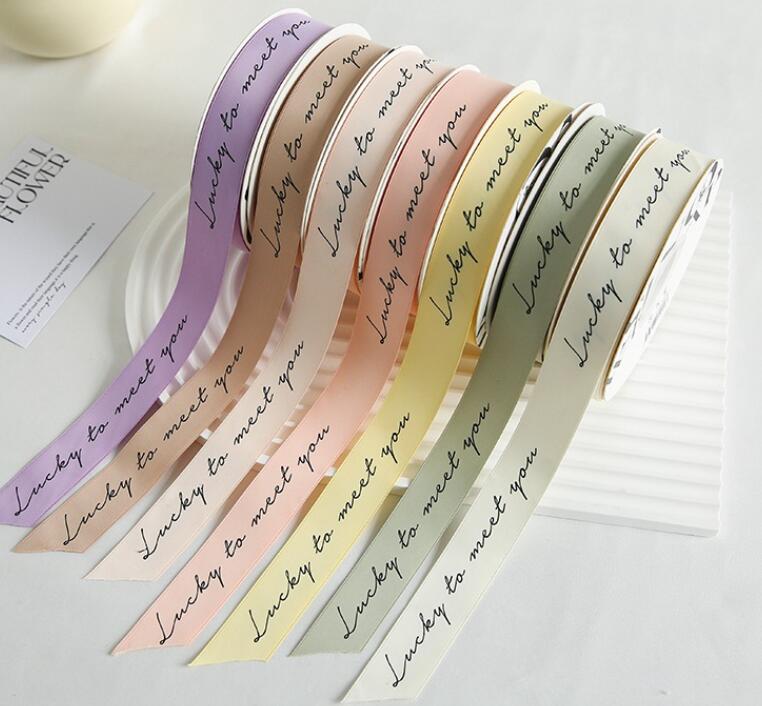 BEAUTIFUL.
FLOWER
Lucky to meet you
Lucky to meet you
Lucky to meet you
Lucky to meet you
Lucky to meet you
Lucky to meet you
Lucky to meet you
Lucky to meet you
Lucky to meet you
Lucky to meet you
Lucky to meet you
Lucky to meet you
Lucky to meet you
Lucky to meet you